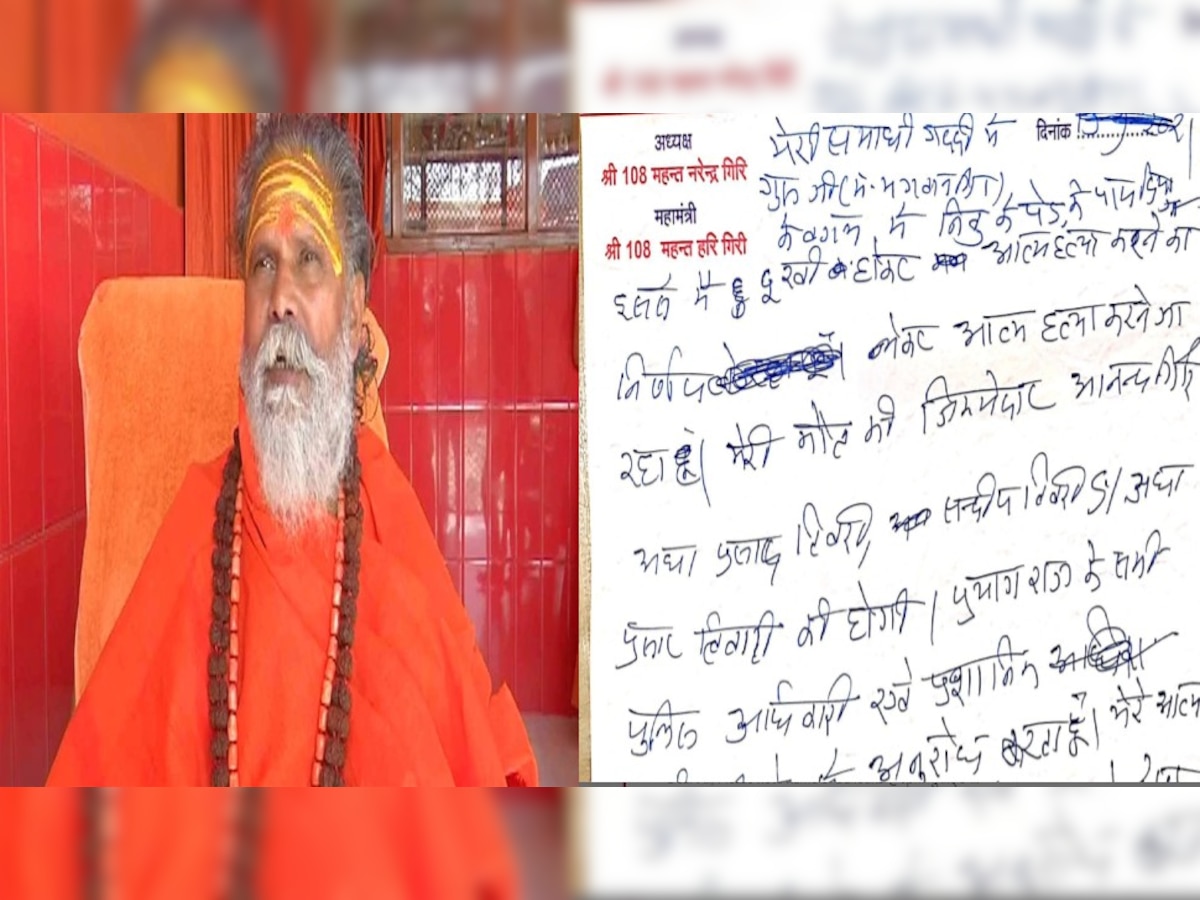 अध्यक्ष
श्री 108 महन्त नरेन्द्र गिरि
महामंत्री
श्री 108 महन्त हरि गिरी
दिनांक
मेरी समाधी गददी में
गुरू जी
के बगल में निबु के पेड़ के पास दिया
इसलें मैं दूखी होकर आत्महत्या करने का
निर्णय लेकर आत्म हत्या करने जा
रहा हूँ। मेरी मौत की जिम्मेदार आनन्द गिरि
अधा प्रसाद तिवारी, सन्दीप तिवारी S/ अधा
प्रसाद तिवारी की होगी। प्रयागराज के सभी
पुलिस अधिकारी एवं प्रशासनिक
अनुरोध करता हूँ। मेरे आत्म